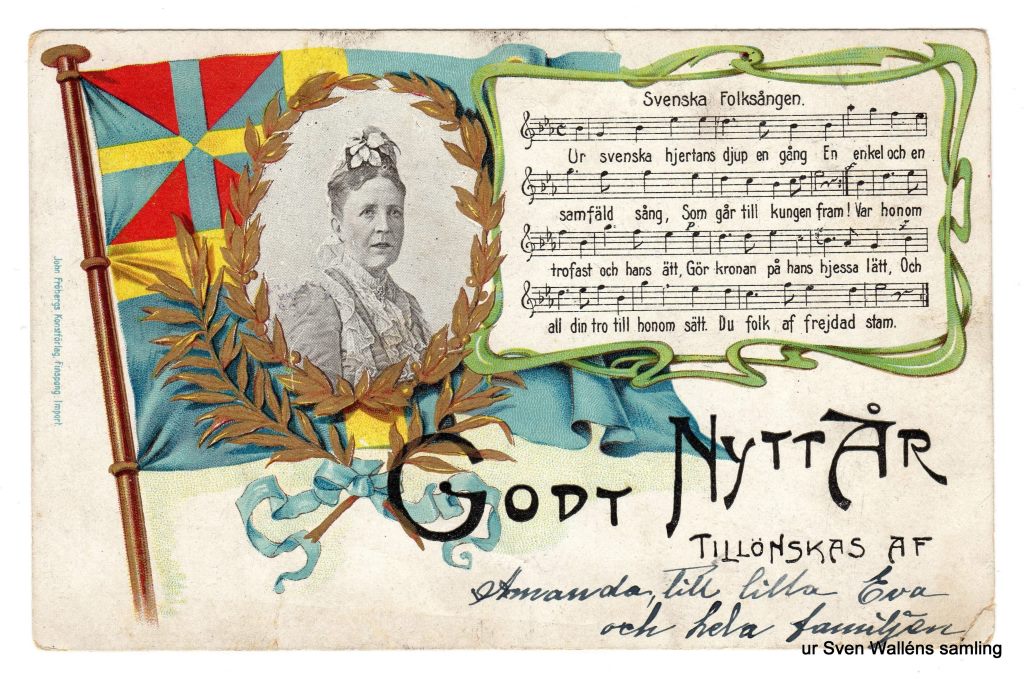 Svenska Folksången.
Ur svenska hjertans djup en gång En enkel och en
samfäld sång, Som går till kungen fram! Var honom
trofast och hans ätt, Gör kronan på hans hjessa lätt, Och
all din tro till honom sätt. Du folk af frejdad stam.
John Fröbergs Konstförlag, Finspong. Import.
GODT NYTT ÅR
TILLÖNSKAS AF
Amanda, till lilla Eva
och hela familjen
ur Sven Walléns samling